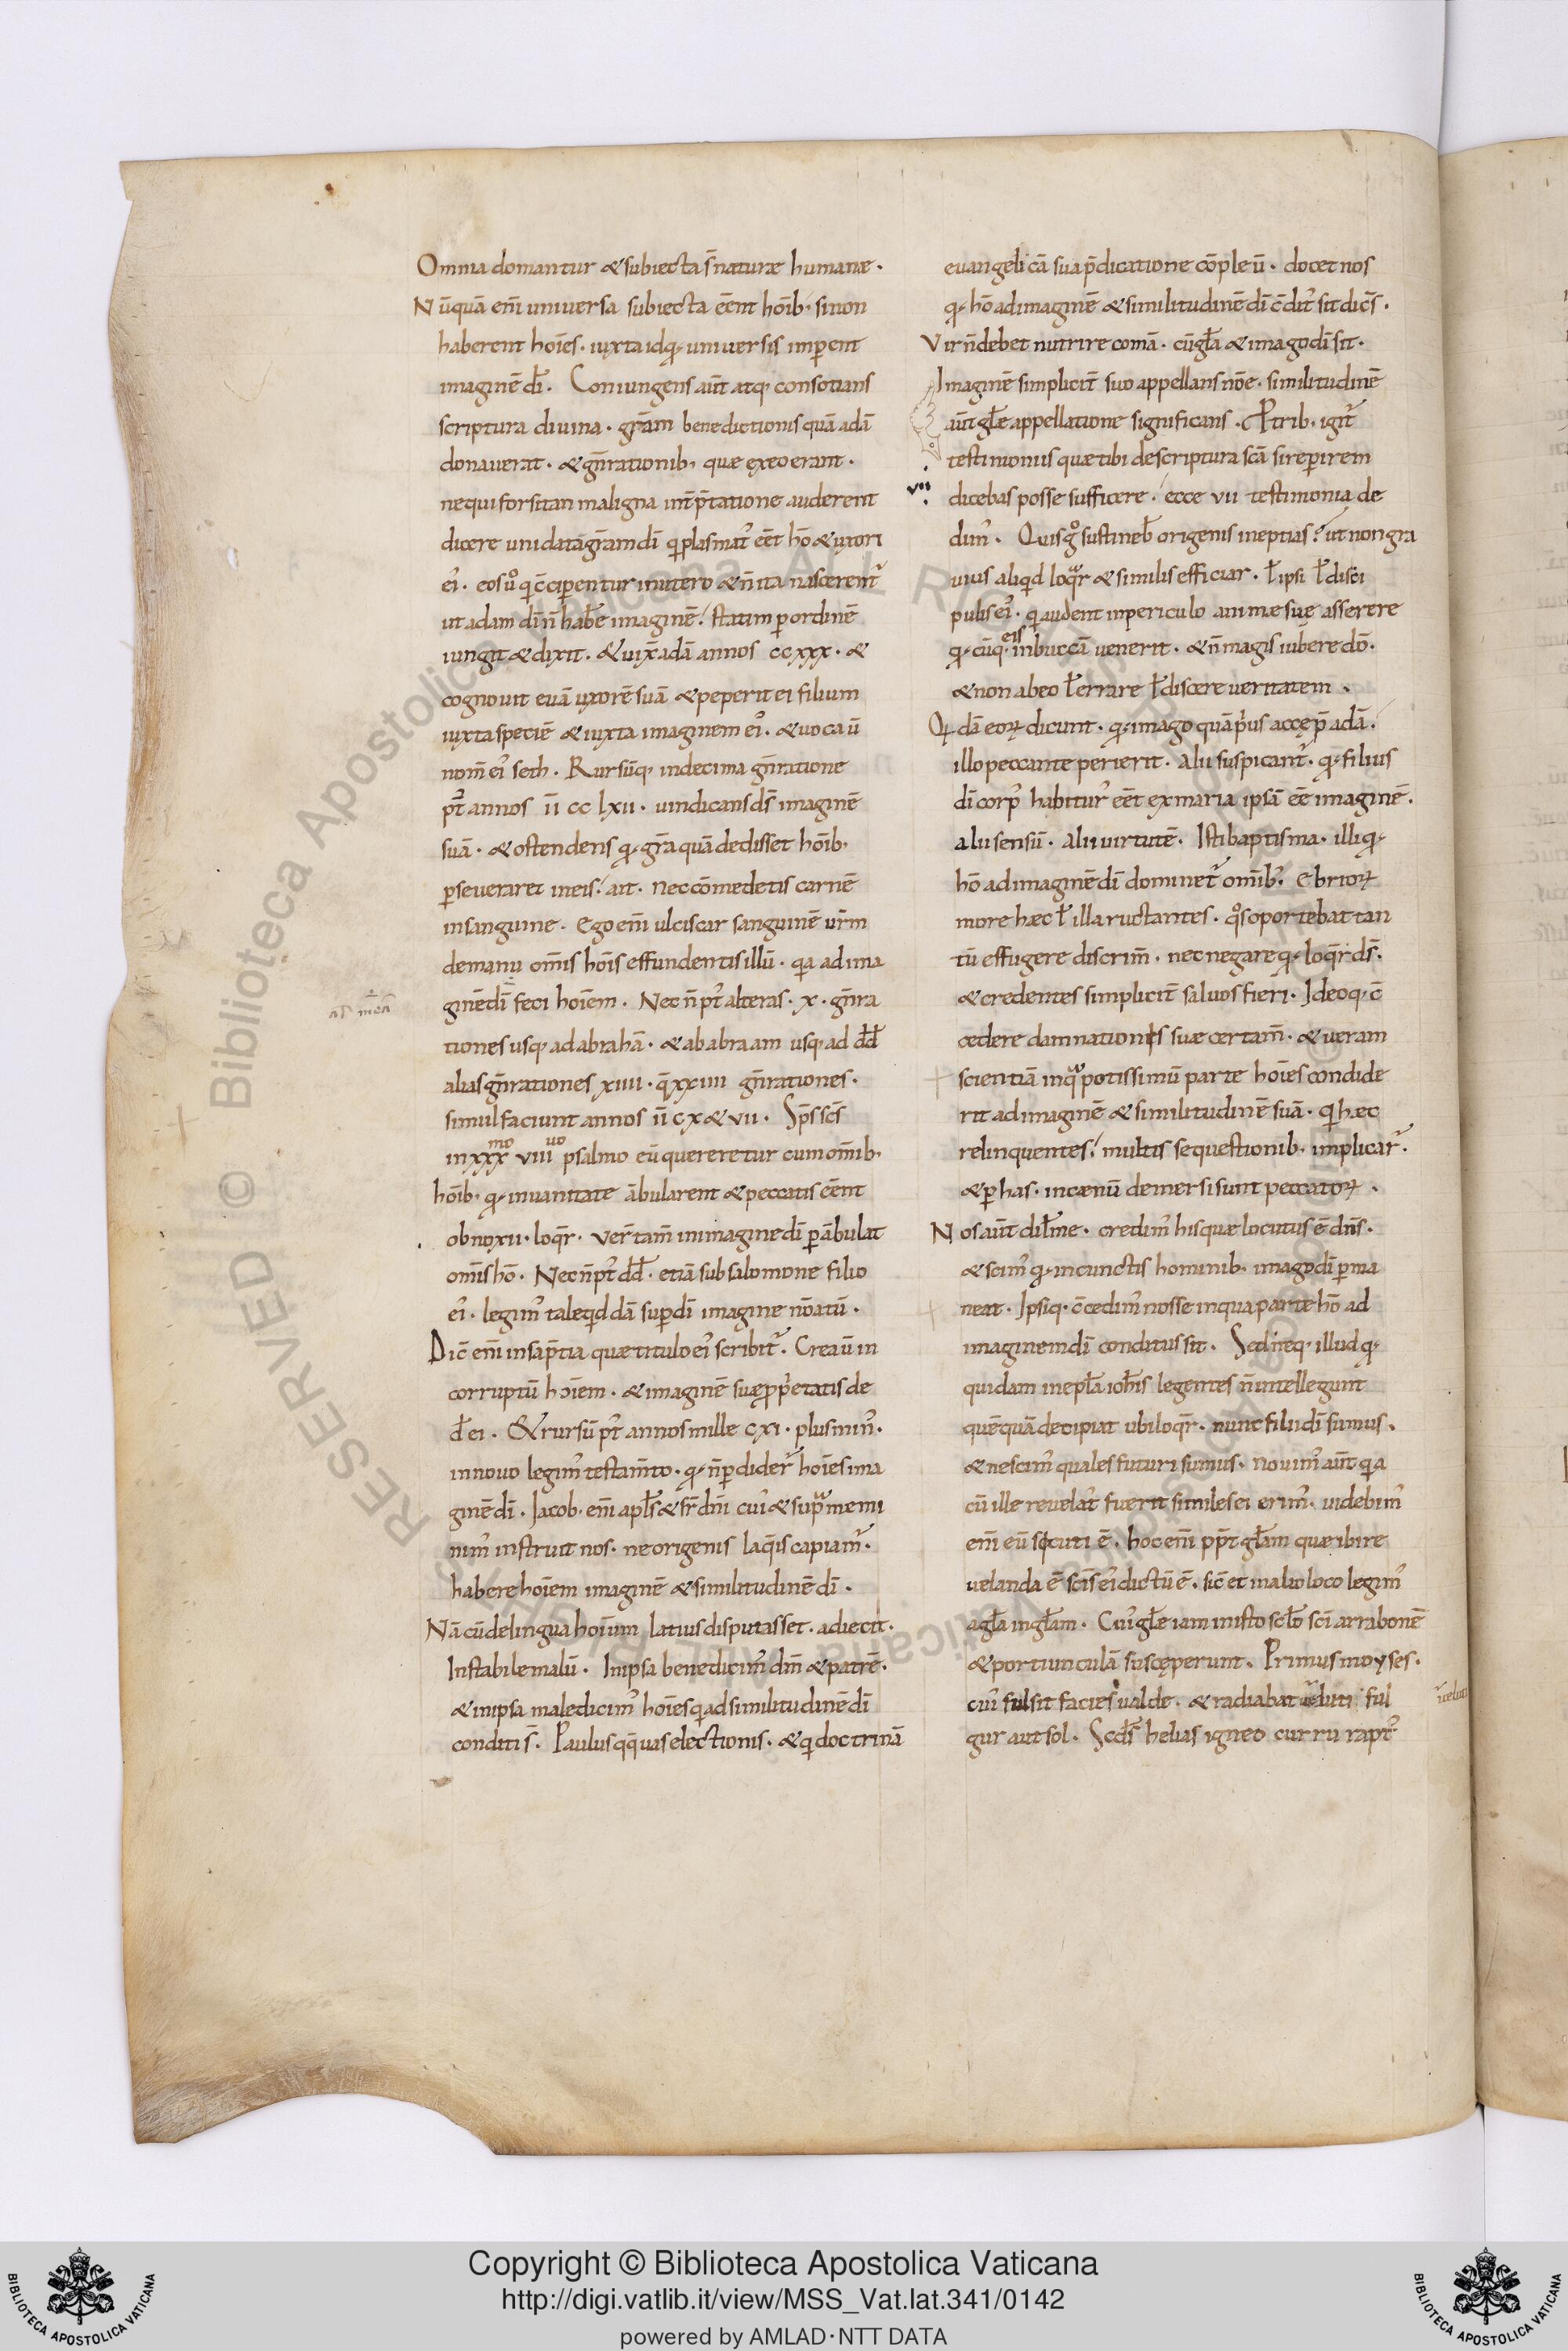 Omnia domantur & subiecta s̄ naturæ humanæ.
Nūquā em̄ uniuersa subiecta eēnt hoīb; si non
haberent hoīes. iuxta id q; uniuersis imꝑent
imaginē dī. Coniungens aūt atq; consotians
scriptura diuina. grām benedictionis quā adā
donauerat. & gn̄rationib; quæ ex eo erant.
ne qui forsitan maligna int̄p̄tatione auderent
dicere uni datā grām dī qi plasmat᾽ eēt hō & uxori
ei᾽. eos uo qi c̄cipentur in utero & n̄ ita nascerent᾽
ut adam dī n̄ habē imaginē. statim ꝑ ordinē
iungit & dixit. & uix̄ adā annos ccxxx. &
cognouit euā uxorē suā & peperit ei filium
iuxta speciē & iuxta imaginem ei᾽. & uocaū
nom̄ ei᾽ seth. Rursūq; in decima gn̄ratione
p᾽t annos īī cc lxii. uindicans ds̄ imaginē
suā. & ostendens q; grā quā dedisset hoīb;
ꝑseueraret in eis. ait. Nec cōmedetis carnē
in sanguine. Ego em̄ ulciscar sanguinē ur̄m
de manu om̄is hoīs effundentis illū. qa ad ima
ginē dī feci hoīem. Nec n̄ p᾽t alteras. x. gn̄ra
tiones usq; ad abrahā. & ab abraam usq; ad dd̄
alias gn̄rationes xiiii. q̄ xxiiii gn̄rationes.
simul faciunt annos īī cx & vii. Sp̄s sc̄s
in xxxmo viiiuo psalmo cū quereretur cum om̄ib;
hoīb; q; in uanitate ābularent & peccatis eēnt
obnoxii. loqr̄. Ver̄tam̄ in imagine dī ꝑābulat
om̄is hō. Nec n̄ p᾽t dd̄. etiā sub salomone filio
ei᾽. legim᾽ tale qd dā suꝑ dī imagine nōatū.
Dic̄ em̄ in sap̄tia quæ titulo ei᾽ scribit᾽. Creaū in
corruptū hoīem. & imaginē suæ ꝓp̄etatis de
d̄ ei. & rursū p᾽t annos mille cxi. plus min᾽.
in nouo legim᾽ testam̄to. q; n̄ ꝑdider᾽ hoīes ima
ginē dī. Jacob. em̄ apls̄ & fr̄ dn̄i cui᾽ & supra memi
nim᾽ instruit nos. ne origenis laqis capiam᾽.
habere hoīem imaginē & similitudinē dī.
Nā cū de lingua hoīum latius disputasset. adiecit.
Instabile malū. In ipsa benedicim᾽ dm̄ & patrē.
& in ipsa maledicim᾽ hoīes qi ad similitudinē dī
conditi s̄. Paulus qq; uas electionis. & qi doctrinā
euangelicā sua p̄dicatione cōpleū. docet nos
q; hō ad imaginē & similitudinē dī c̄dit᾽ sit dic̄s.
Vir n̄ debet nutrire comā. cū glā & imago dī sit.
Imaginē simplicit̄ suo appellans nōe. similitudinē
aūt glæ appellatione significans. Ptrib; igit᾽
testimoniis quæ tibi de scriptura scā si repirem
vii
dicebas posse sufficere. ecce vii testimonia de
dim᾽. Quis go sustineb̄ origenis ineptias? ut non gra
uius aliqd loqar & similis efficiar. ł ipsi ł disci
pulis ei᾽. qi audent in periculo animæ suæ asserere
q;cūq; eis in buccā uenerit. & n̄ magis iubere dō.
& non ab eo ł errare ł discere ueritatem.
Qdā eoꝝ dicunt. q; imago quā pius accep̄ adā.
illo peccante perierit. Alii suspicant᾽. q; filius
dī corp᾽ habitur᾽ eēt ex maria ipsā eē imaginē.
alii sensū. alii uirtutē. Isti baptisma. illi q;
hō ad imaginē dī dominet᾽ om̄ib᾽. Ebrioꝝ
more hæc ł illa ructantes. qos oportebat tan
tū effugere discrim̄. nec negare q; loqr̄ ds̄.
& credentes simplicit̄ saluos fieri. Ideoq; c̄
cedere damnationis suæ certam̄. & ueram
scientiā in qua potissimū parte hoīes condide
rit ad imaginē & similitudinē suā. qi hæc
relinquentes. multis se questionib; implicar᾽.
& ꝑ has. in cænū demersi sunt peccatoꝝ.
Nos aūt dilme. credim᾽ his quæ locutus ē dn̄s.
& scim᾽ q; in cunctis hominib; imago dī ꝑma
neat. Ipsiq; c̄cedim᾽ nosse in qua parte hō ad
imaginem dī conditus sit. Sed neq; illud q;
quidam in epła ioh̄is legentes n̄ intellegunt
quēquā decipiat ubi loqr̄. nunc filii dī sumus.
& nescim᾽ quales futuri sumus. nouim᾽ aūt qia
cū ille reuelat᾽ fuerit similes ei erim᾽. uidebim᾽
em̄ eū sicuti ē. hoc em̄ pp̄t glām quæ ibi re
uelanda ē scīs ei᾽ dictū ē. sic̄ et in alio loco legim᾽
a glā in glām. Cui᾽ glæ iam in isto sclō scī arrabonē
& portiunculā susceperunt. Primus moyses.
cui᾽ fulsit facies ualde. & radiabat ueluti ful
gur aut sol. Scds̄ helias igneo curru rapt᾽
Copyright © Biblioteca Apostolica Vaticana
http://digi.vatlib.it/view/MSS_Vat.lat.341/0142
powered by AMLAD·NTT DATA